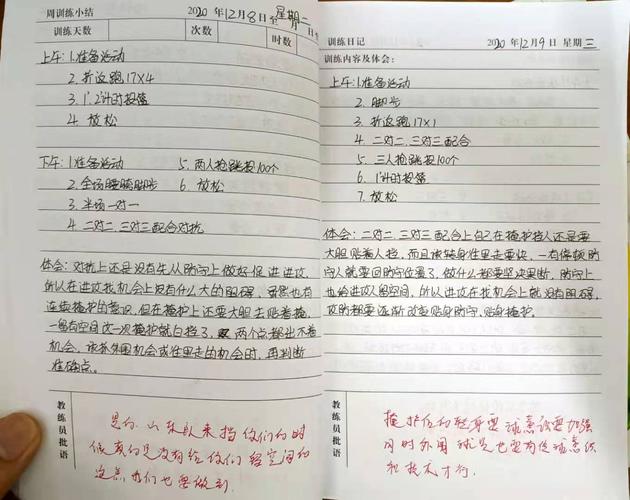 周训练小结 2020年12月8日至 星期二
训练天数 次数 时数
上午:1.准备活动
2.折返跑17×4
3.1'2'计时投篮
4.放松
下午:1.准备活动 5.两人抢跳投100个
2.全场腰骑脚步 6.放松
3.半场一对一
4.二对二 三对三配合对抗
体会:对抗上还是没有先从防守上做好促进进攻,
所以在进攻找机会上没有什么大的阻碍,虽然也有
连续掩护的意识,但在掩护上还要大胆去贴着掩,
一留有空间这一次掩护就白挡了,两个点都出不着
机会,该券外围机会或往里走的机会时,再判断
准确点。
教练员批语
是的,山东队来挡你们的时
候真的是没有给你们留空间的
这点我们也要做到.
训练日记 2020年12月9日 星期三
训练内容及体会:
上午:1.准备活动
2.脚步
3.折返跑17×1
4.二对二、三对三配合
5.三人抢跳投100个
6.1'计时投篮
7.放松
体会:二对二,三对三配合上自己在掩护挡人还是要
大胆贴着人挡,而且该转身往里走要快,一有停顿防
守人就要回防守位置了,做什么都要坚决果断,防守上
也给进攻人留空间,所以进攻在找机会上就没有阻碍,
攻防都要逐渐改变贴身防守,贴身掩护。
教练员批语
掩护后的转身要球意识要加强
同时外围球员也要有传球意识
和技术才行.